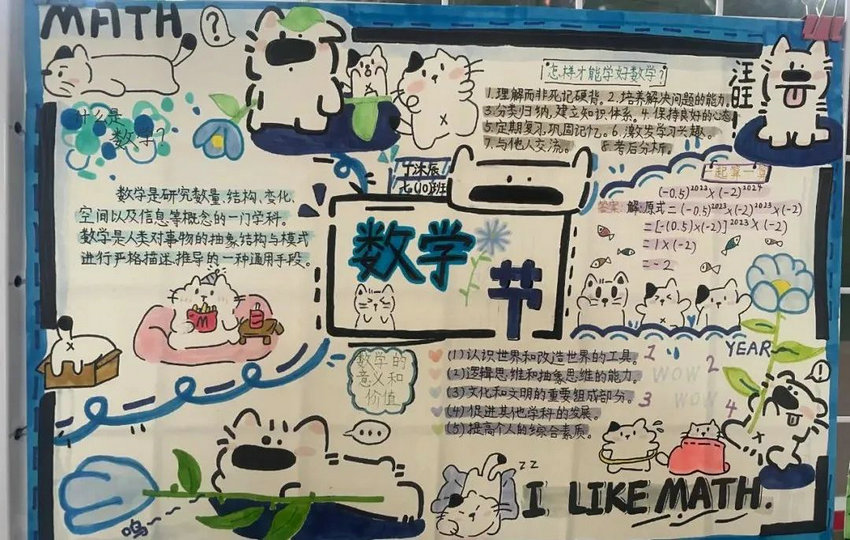 MATH
?
什么是
数学?
怎样才能学好数学?
1.理解而非死记硬背。2.培养解决问题的能力。
3.分类归纳,建立知识体系。4.保持良好的心态。
5.定期复习,巩固记忆。6.激发学习兴趣。
7.与他人交流。 8.考后分析。
汪
旺
七(10)班
数学是研究数量、结构、变化、
空间以及信息等概念的一门学科。
数学是人类对事物的抽象结构与模式
进行严格描述、推导的一种通用手段。
一起算一算
(-0.5)²⁰²³×(-2)²⁰²⁴
答案:解:原式=(-0.5)²⁰²³×(-2)²⁰²³×(-2)
=[-(0.5)×(-2)]²⁰²³×(-2)
=1×(-2)
=-2
数学
节
M
数学的
意义和
价值
(1)认识世界和改造世界的工具。
(2)逻辑思维和抽象思维的能力。
(3)文化和文明的重要组成部分。
(4)促进其他学科的发展。
(5)提高个人的综合素质。
1
2
WOW
3
WOW
4
YEAR
!
...
zz
呜
I LIKE MATH.